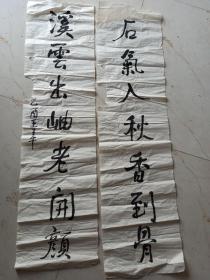 石氣入秋香到骨
溪雲出岫老開顏